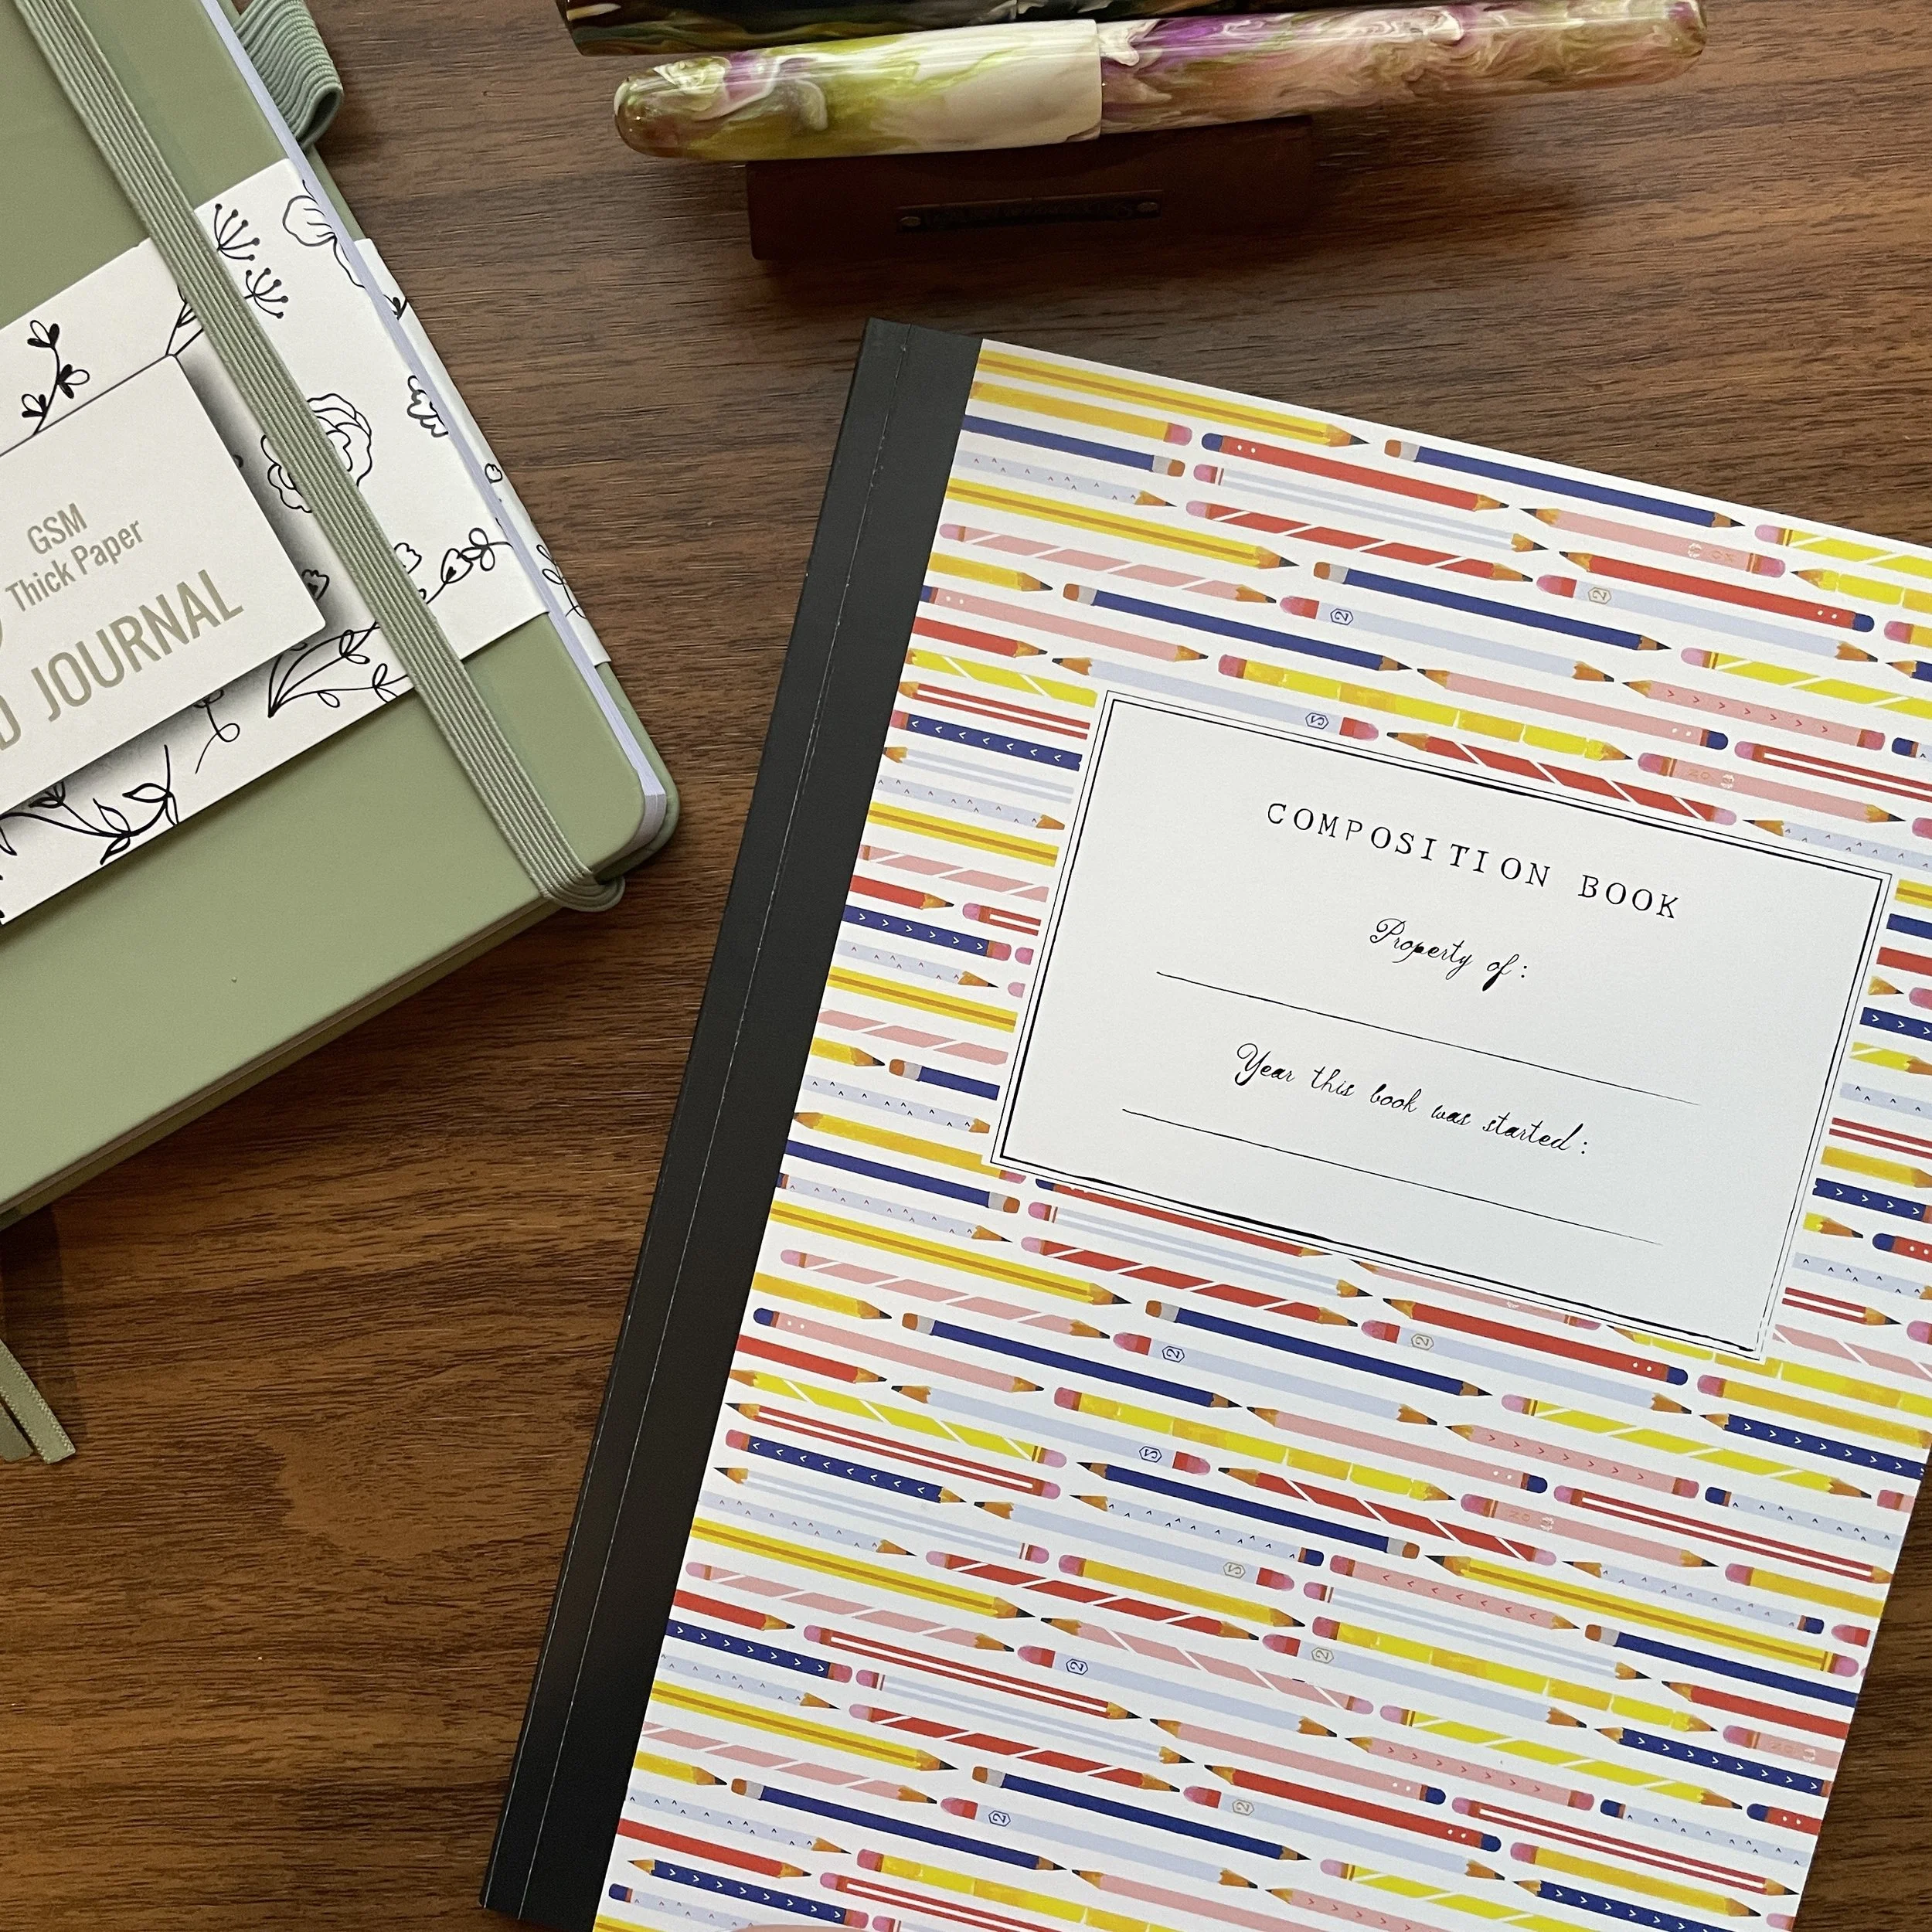 GSM
Thick Paper
JOURNAL
COMPOSITION BOOK
Property of:
Year this book was started:
2
2
2
2
2
2
2
2